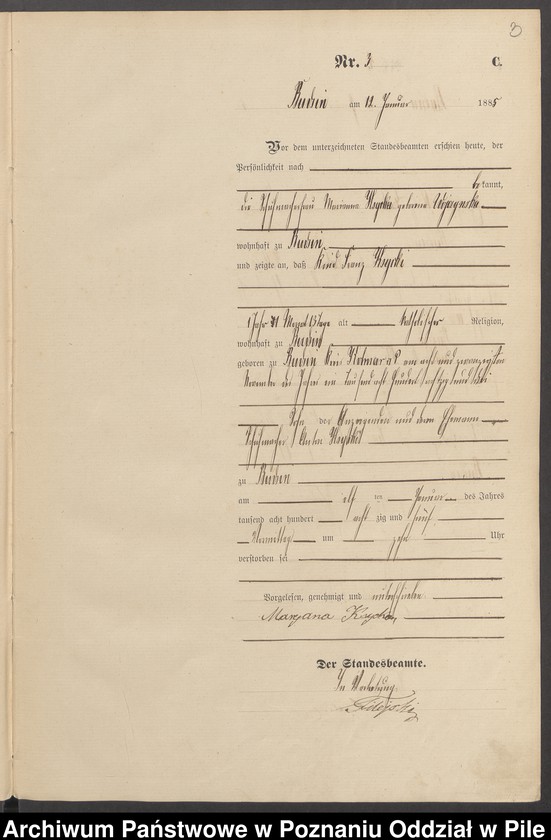 3
Nr. 3 C.
Budsin am 12. Januar 1885
Vor dem unterzeichneten Standesbeamten erschien heute, der
Persönlichkeit nach
bekannt,
die Schuhmacherfrau Marianna geborene
wohnhaft zu Budsin
und zeigte an, daß Kind Franz
1 Jahr Monat 15 Tage alt katholischer Religion,
wohnhaft zu Budsin
geboren zu Budsin Kreis am acht und zwanzigsten
November des Jahres ein tausend acht hundert achtzig und drei
Sohn der Anzeigenden und deren Ehemann
Schuhmacher Anton
zu Budsin
am elf ten Januar des Jahres
tausend acht hundert acht zig und fünf
Vormittag um zehn Uhr
verstorben sei
Vorgelesen, genehmigt und unterschrieben
Maryana
Der Standesbeamte.
In Vertretung.
Archiwum Państwowe w Poznaniu Oddział w Pile